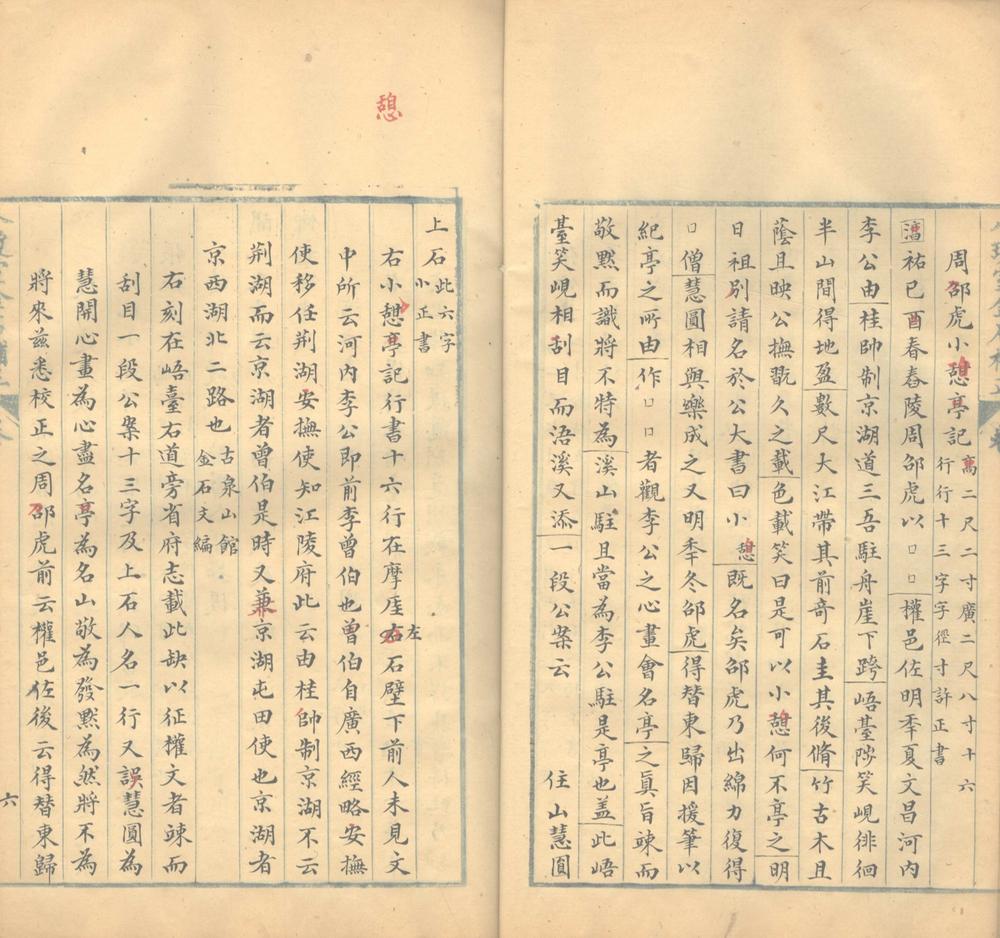 周邵虎小憩亭記高二尺二寸廣二尺八寸十六行行十三字字徑寸許正書
淳祐已酉春舂陵周邵虎以□□權邑佐明秊夏文昌河內
李公由桂帥制京湖道三吾駐舟崖下跨峿臺陟笑峴徘徊
半山間得地盈數尺大江帶其前奇石圭其後脩竹古木且
蔭且映公撫翫久之載色載笑曰是可以小憩何不亭之明
日祖別請名於公大書曰小憩既名矣邵虎乃出綿力復得
□僧慧圓相與樂成之又明秊冬邵虎得替東歸因援筆以
紀亭之所由作□□者觀李公之心畫會名亭之真旨竦而
敬黙而識將不特為溪山駐且當為李公駐是亭也盖此峿
臺笑峴相刮目而浯溪又添一段公案云 住山慧圓
上石此六字小正書
右小憩亭記行書十六行在摩厓左石壁下前人未見文
中所云河內李公即前李曾伯也曾伯自廣西經略安撫
使移任荆湖安撫使知江陵府此云由桂帥制京湖不云
荆湖而云京湖者曾伯是時又兼京湖屯田使也京湖者
京西湖北二路也古泉山館金石文編
右刻在峿臺右道旁省府志載此缺以征權文者竦而
刮目一段公案十三字及上石人名一行又誤慧圓為
慧開心畫為心盡名亭為名山敬為發黙為然將不為
將來兹悉校正之周邵虎前云權邑佐後云得替東歸
六
憩